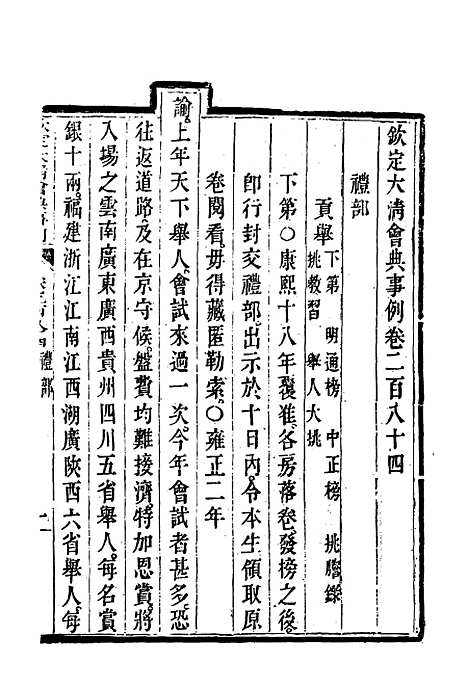 欽定大清會典事例卷二百八十四
禮部
貢舉下第 明通榜 中正榜 挑謄錄
挑教習 舉人大挑
下第〇康熙十八年覆准各房落卷發榜之後
即行封交禮部出示於十日內令本生領取原
卷閱看毋得藏匿勒索〇雍正二年
諭上年天下舉人會試來過一次今年會試者甚多恐
往返道路及在京守候盤費均難接濟特加恩賞將
入場之雲南廣東廣西貴州四川五省舉人每名賞
銀十兩福建浙江江南江西湖廣陝西六省舉人每
禮部